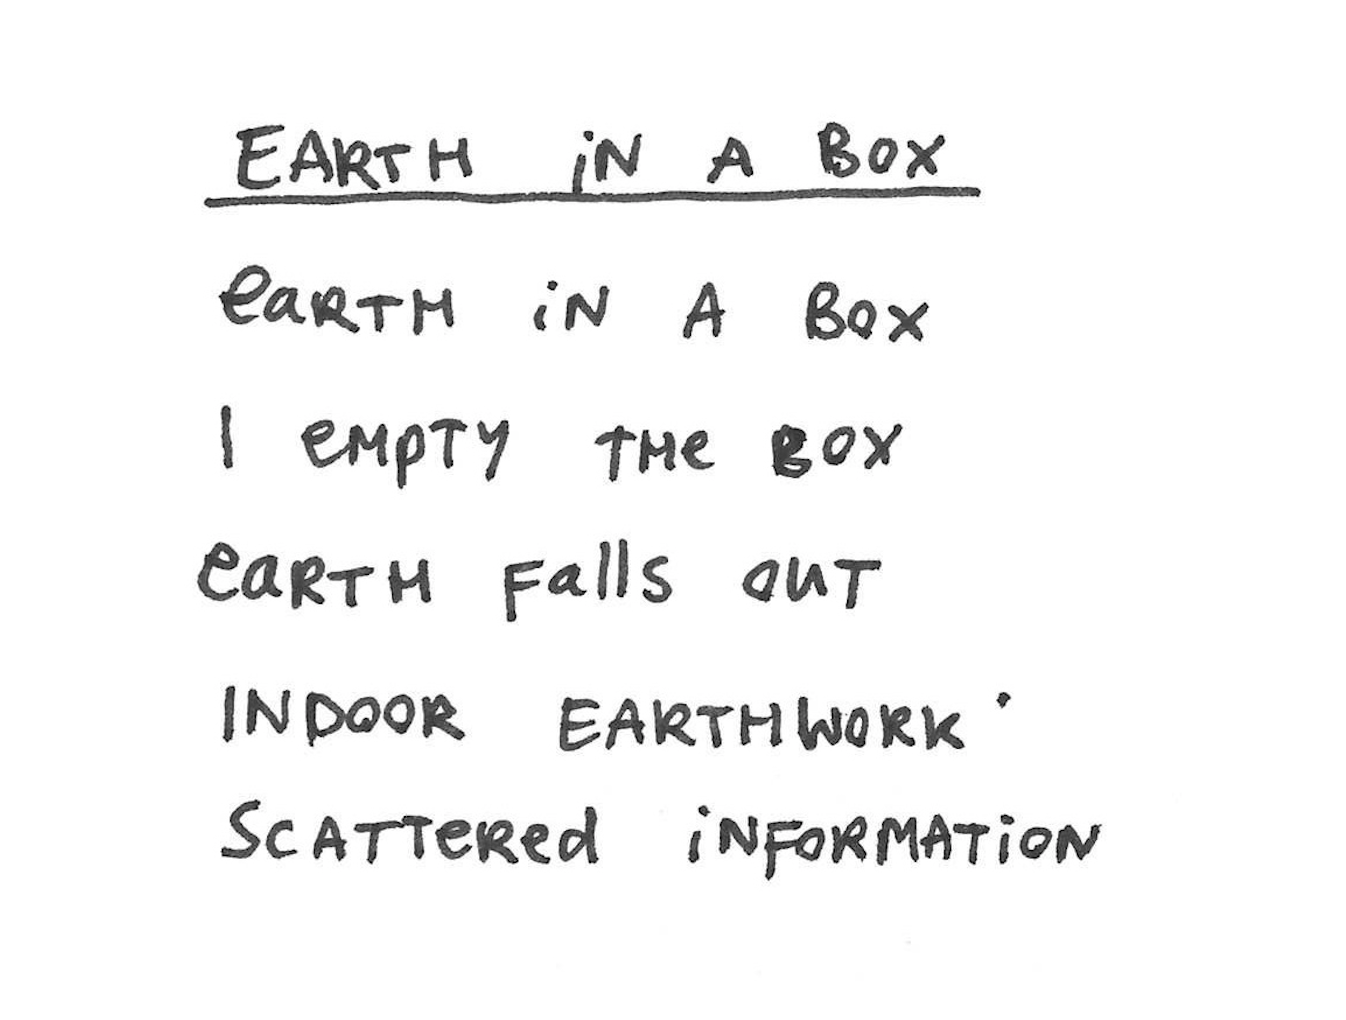 EARTH iN A BOX
eaRTH iN A BOX
I eMpTY THe BOX
eaRTH Falls OuT
INDOOR EARTHWORK
SCATTeRed iNFORMATiON